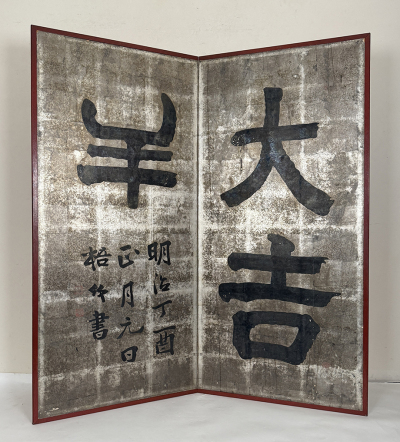 大吉
羊
明治丁酉
正月元日
梧竹書